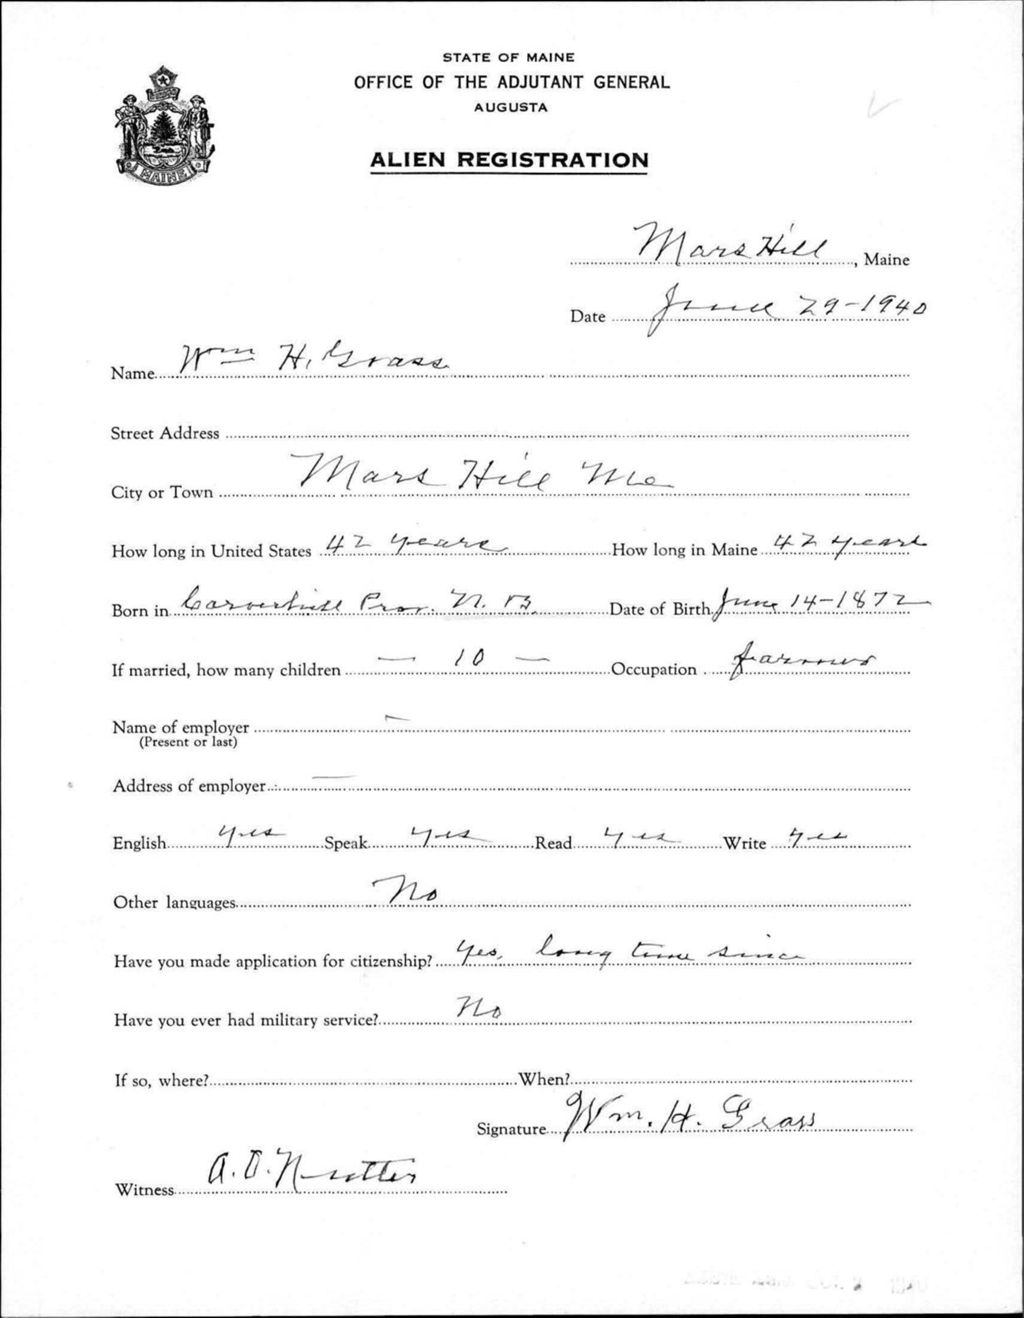 STATE OF MAINE
OFFICE OF THE ADJUTANT GENERAL
AUGUSTA
ALIEN REGISTRATION
MAINE
Mars Hill, Maine
Date June 29-1940
Name Wm H. Grass
Street Address
City or Town Mars Hill Me
How long in United States 42 years How long in Maine 42 years
Born in Prov. N. B. Date of Birth June 14-1872
If married, how many children - 10 - Occupation farmer
Name of employer -
(Present or last)
Address of employer —
English yes Speak yes Read yes Write yes
Other languages No
Have you made application for citizenship? Yes, long time since
Have you ever had military service? No
If so, where? When?
Signature Wm. H. Grass
Witness A. D. Nutter